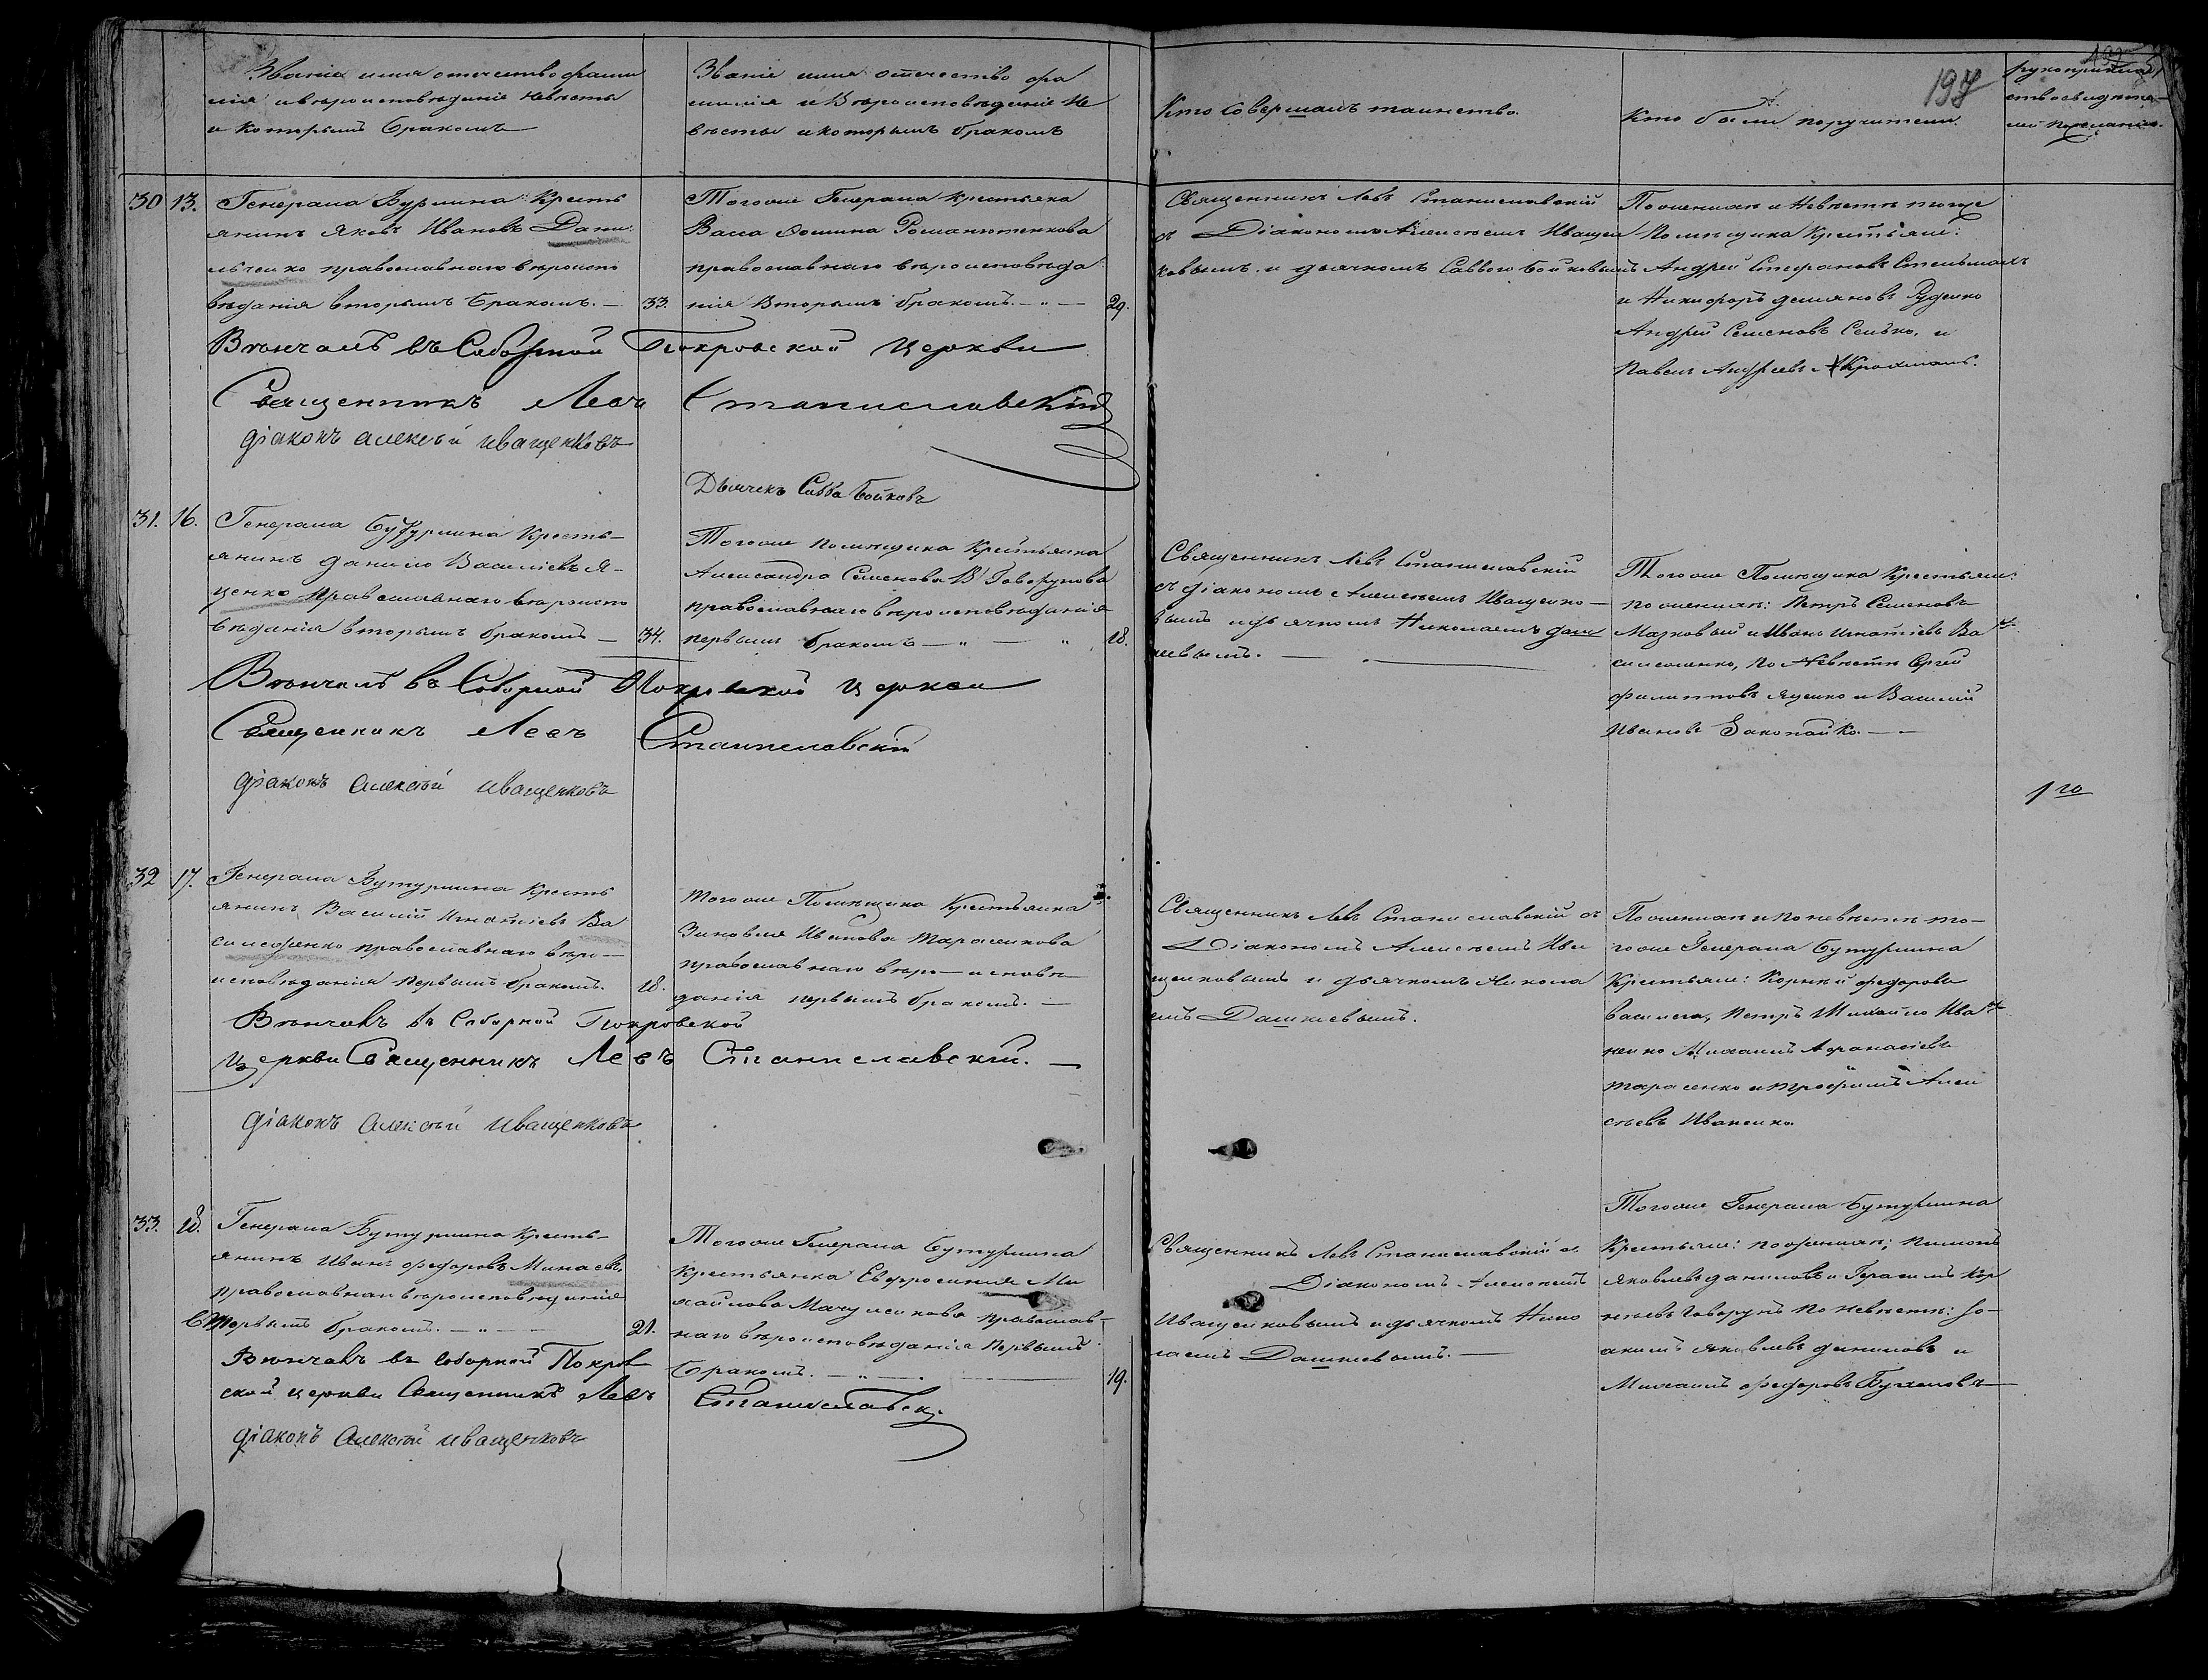 Званіе имя отечество фами
лія и вероисповѣданіе Невѣсты
и которымъ бракомъ
Званіе имя отечество фа
милія и Вѣроисповѣданіе Не
вѣсты и которымъ бракомъ
Кто совершалъ таинство.
Кто были поручители.
197
30 13. Генерала Бурлина Кресть
янинъ Яковъ Ивановъ Дани
льченко православнаго вѣроиспо
вѣданія вторымъ бракомъ. — 33.
Тогоже Генерала Крестьянка
Васса Фомина Романютенкова
православнаго вѣроисповѣда
нія Вторымъ бракомъ. — „ — 29.
Священникъ Левъ Станиславскій
съ Діакономъ Алексѣемъ Иващен
ковымъ и дьячкомъ Саввою Бойковымъ
Пожениха и Невѣстѣ тогоже
Помѣщика Крестьяне:
Андрей Стефановъ Стельмахъ
и Никифоръ Демяновъ Руденко
Андрей Семеновъ Семко, и
Павелъ Андреевъ Крохмаль.
Вѣнчалъ въ Соборной Покровской церкви
Священникъ Левъ Станиславскій
Діаконъ Алексѣй Иващенковъ
Дьячекъ Савва Бойковъ
31. 16. Генерала Бутурлина Кресть-
янинъ Данило Василіевъ Я-
ценко православнаго вѣроиспо
вѣданія вторымъ бракомъ — 34.
Тогоже Помѣщика Крестьянка
Александра Семенова Говорунова
православнаго вѣроисповѣданія
первымъ бракомъ — „ — „ 18.
Священникъ Левъ Станиславскій
съ діакономъ Алексѣемъ Иващенко-
вымъ и дьячкомъ Николаемъ Даш
кевымъ. —
Тогоже Помѣщика Крестьяне:
по женихѣ: Петръ Семеновъ
Мазковый и Иванъ Игнатіевъ Ва
силсоленко, по Невѣстѣ Сергѣй
Филиповъ Яценко и Василій
Ивановъ Закопайко. — —
Вѣнчалъ въ Соборной Покровской церкви
Священникъ Левъ Станиславскій
Діаконъ Алексѣй Иващенковъ
32 17. Генерала Бутурлина Кресть
янинъ Василій Игнатіевъ Ва
силсоленко православнаго вѣро-
исповѣданія первымъ бракомъ. 18.
Тогоже Помѣщика Крестьянка
Зиновія Иванова Тарасенкова
православнаго вѣро-исповѣ
данія первымъ бракомъ. —
Священникъ Левъ Станиславскій съ
Діакономъ Алексѣемъ Ива
щенковымъ и дьячкомъ Никола
емъ Дашкевымъ.
Пожениха и по невѣстѣ то-
гоже Генерала Бутурлина
Крестьяне: Корнѣй Федоровъ
Василса, Петръ Михайло Ива
ненко Михаилъ Афанасіевъ
Тарасенко и Трофимъ Алек
сѣевъ Иваненко.
Вѣнчалъ въ Соборной Покровской
церкви Священникъ Левъ Станиславскій. —
Діаконъ Алексѣй Иващенковъ
33. 18. Генерала Бутурлина Кресть-
янинъ Иванъ Федоровъ Минаевъ,
православнаго вѣроисповѣданія
вторымъ бракомъ. — „ — 21.
Тогоже Генерала Бутурлина
Крестьянка Евфросинія Ми
хайлова Мачулсикова православ-
наго вѣроисповѣданія первымъ
бракомъ. — „ — 19.
Священникъ Левъ Станиславскій съ
Діакономъ Алексѣемъ
Иващенковымъ и дьячкомъ Нико
лаемъ Дашкевымъ. —
Тогоже Генерала Бутурлина
Крестьяне: по женихѣ; Пимонъ
Яковлевъ Даниловъ и Герасимъ Кор
нѣевъ Говорунъ по невѣстѣ: Іо-
акимъ Яковлевъ Даниловъ и
Михаилъ Федоровъ Бухановъ
Вѣнчалъ въ Соборной Покров
ской церкви Священникъ Левъ Станиславск.
Діаконъ Алексѣй Иващенковъ